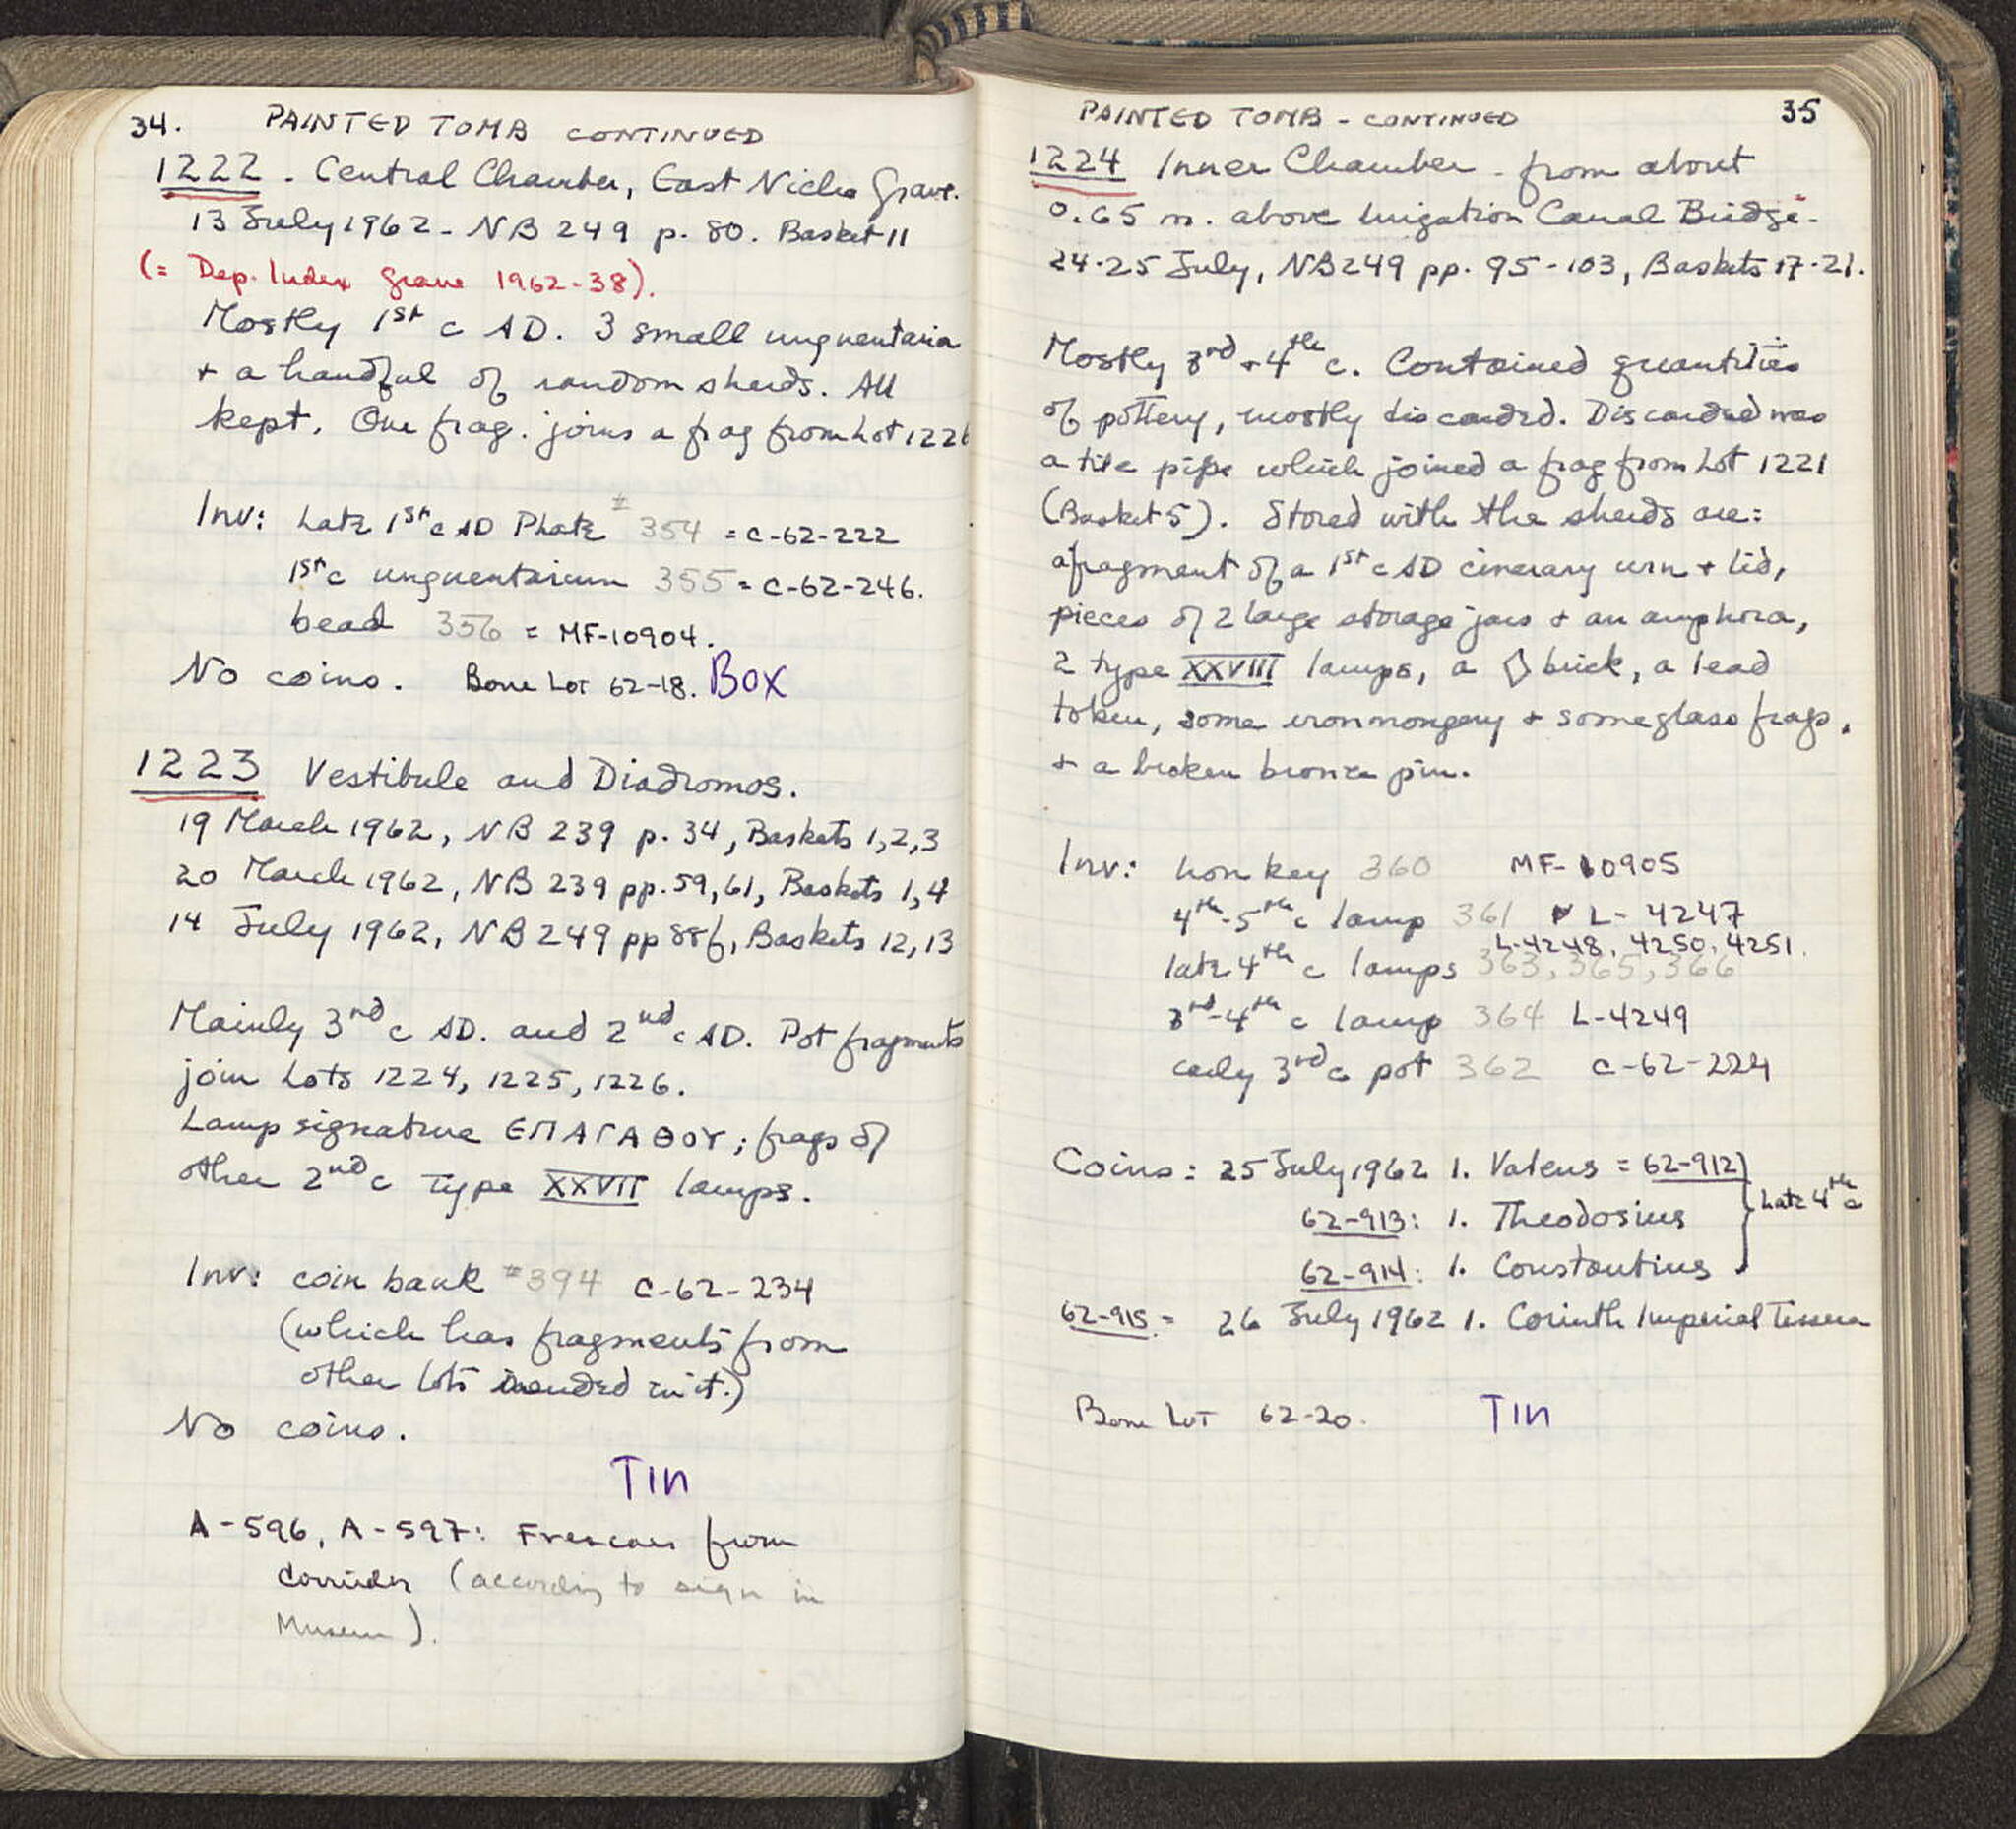 34. PAINTED TOMB CONTINUED
1222. Central Chamber, East Niche Grave.
13 July 1962 - NB 249 p. 80. Basket 11
(= Dep. Index Grave 1962-38).
Mostly 1st c AD. 3 small unguentaria
+ a handful of random sherds. All
kept. One frag. joins a frag from Lot 1226
Inv: Late 1st c AD Plate # 354 = C-62-222
1st c unguentarium 355 = C-62-246.
bead 356 = MF-10904.
No coins. Bone Lot 62-18. BOX
1223 Vestibule and Diadromos.
19 March 1962, NB 239 p. 34, Baskets 1,2,3
20 March 1962, NB 239 pp. 59, 61, Baskets 1,4
14 July 1962, NB 249 pp 88f, Baskets 12, 13
Mainly 3rd c AD. and 2nd c AD. Pot fragments
join Lots 1224, 1225, 1226.
Lamp signature ЄΠΑΓΑΘΟΥ; frags of
other 2nd c Type XXVII lamps.
Inv: coin bank #394 C-62-234
(which has fragments from
other lots mended in it.)
No coins.
TIN
A-596, A-597: Frescoes from
corridor (according to sign in
Museum).
PAINTED TOMB - CONTINUED 35
1224 Inner Chamber - from about
0.65 m. above Irrigation Canal Bridge.
24-25 July, NB 249 pp. 95-103, Baskets 17-21.
Mostly 3rd + 4th c. Contained quantities
of pottery, mostly discarded. Discarded was
a tile pipe which joined a frag from Lot 1221
(Basket 5). Stored with the sherds are:
a fragment of a 1st c AD cinerary urn + lid,
pieces of 2 large storage jars + an amphora,
2 type XXVIII lamps, a ◊ brick, a lead
token, some ironmongery + some glass frags,
+ a broken bronze pin.
Inv: Iron key 360 MF-10905
4th-5th c lamp 361 L-4247
L-4248, 4250, 4251.
late 4th c lamps 363, 365, 366
3rd-4th c lamp 364 L-4249
early 3rd c pot 362 C-62-224
Coins: 25 July 1962 1. Valens = 62-912
62-913: 1. Theodosius } Late 4th c
62-914: 1. Constantius
62-915 = 26 July 1962 1. Corinth Imperial Tessera
Bone Lot 62-20. TIN